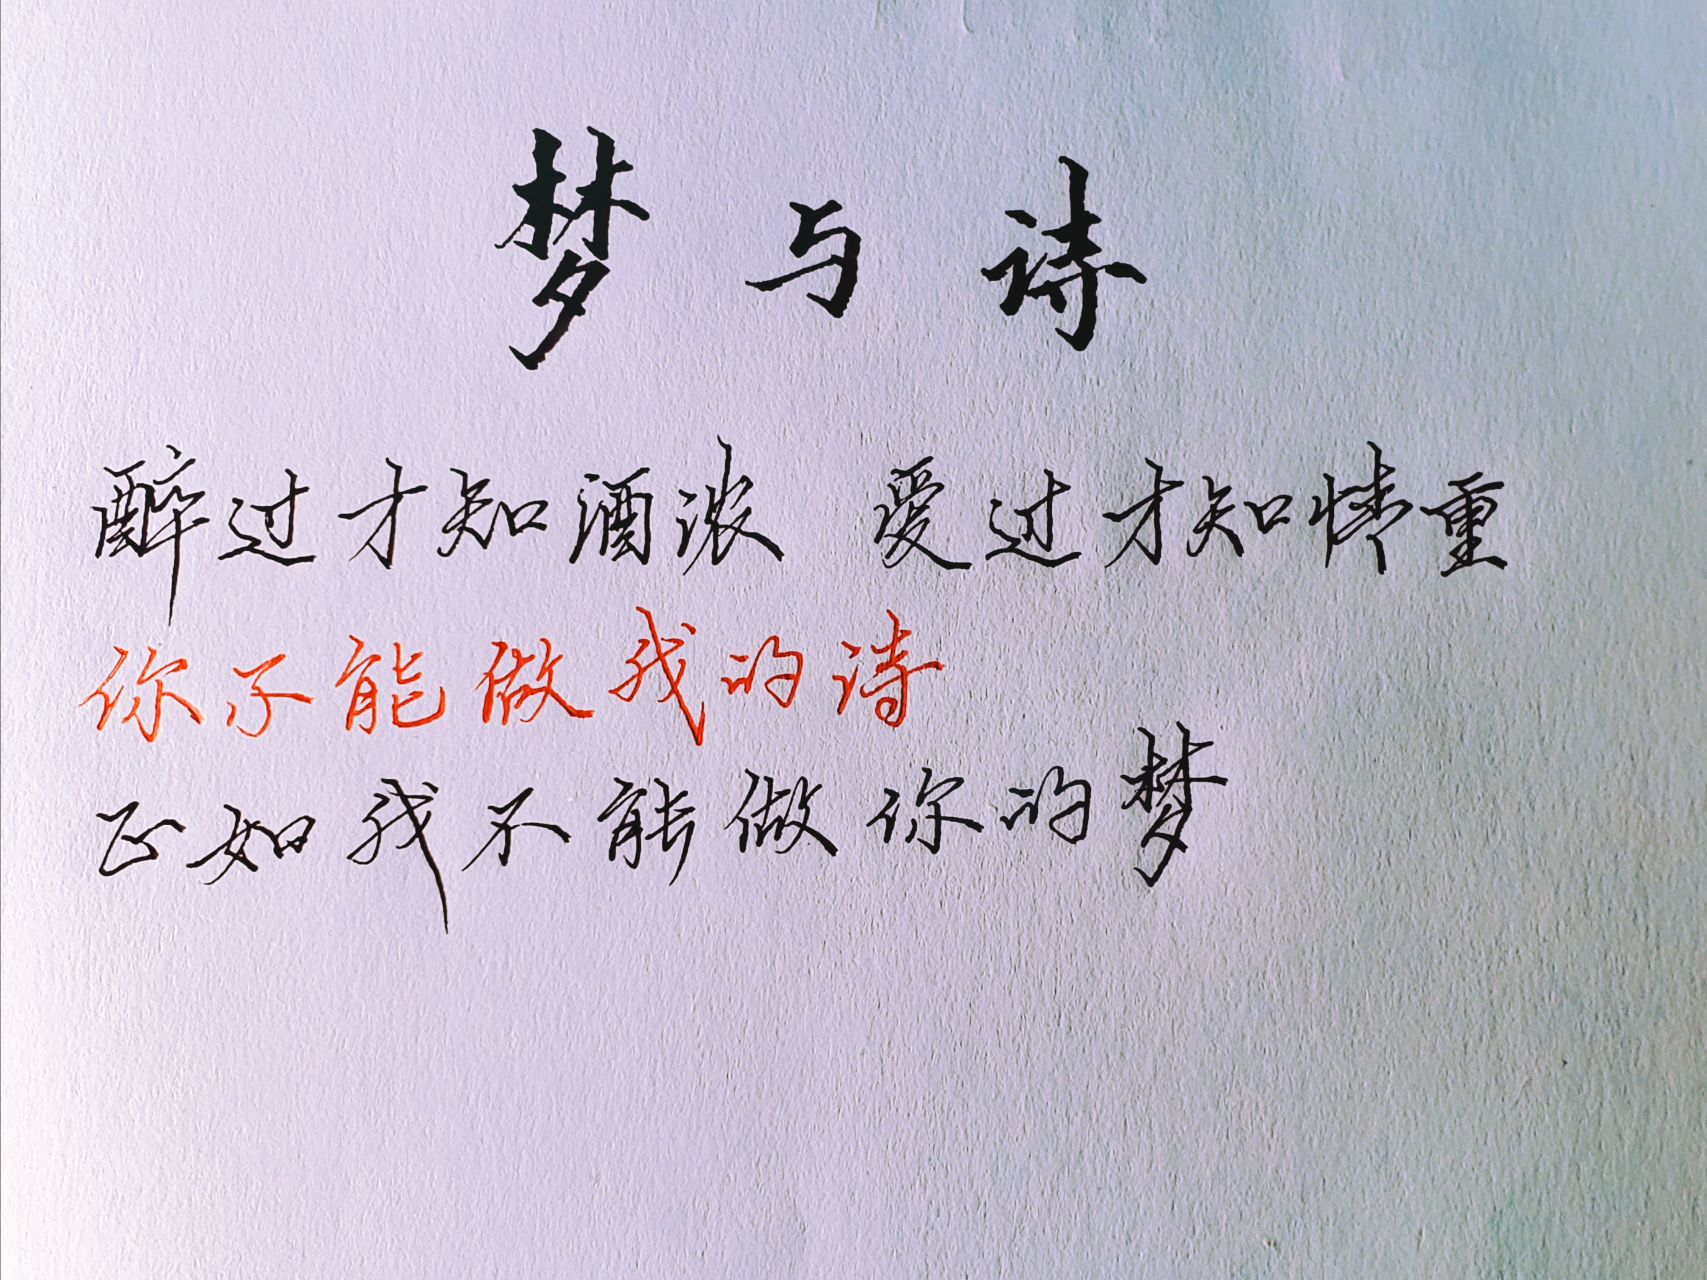 梦与诗
醉过才知酒浓 爱过才知情重
你不能做我的诗
正如我不能做你的梦